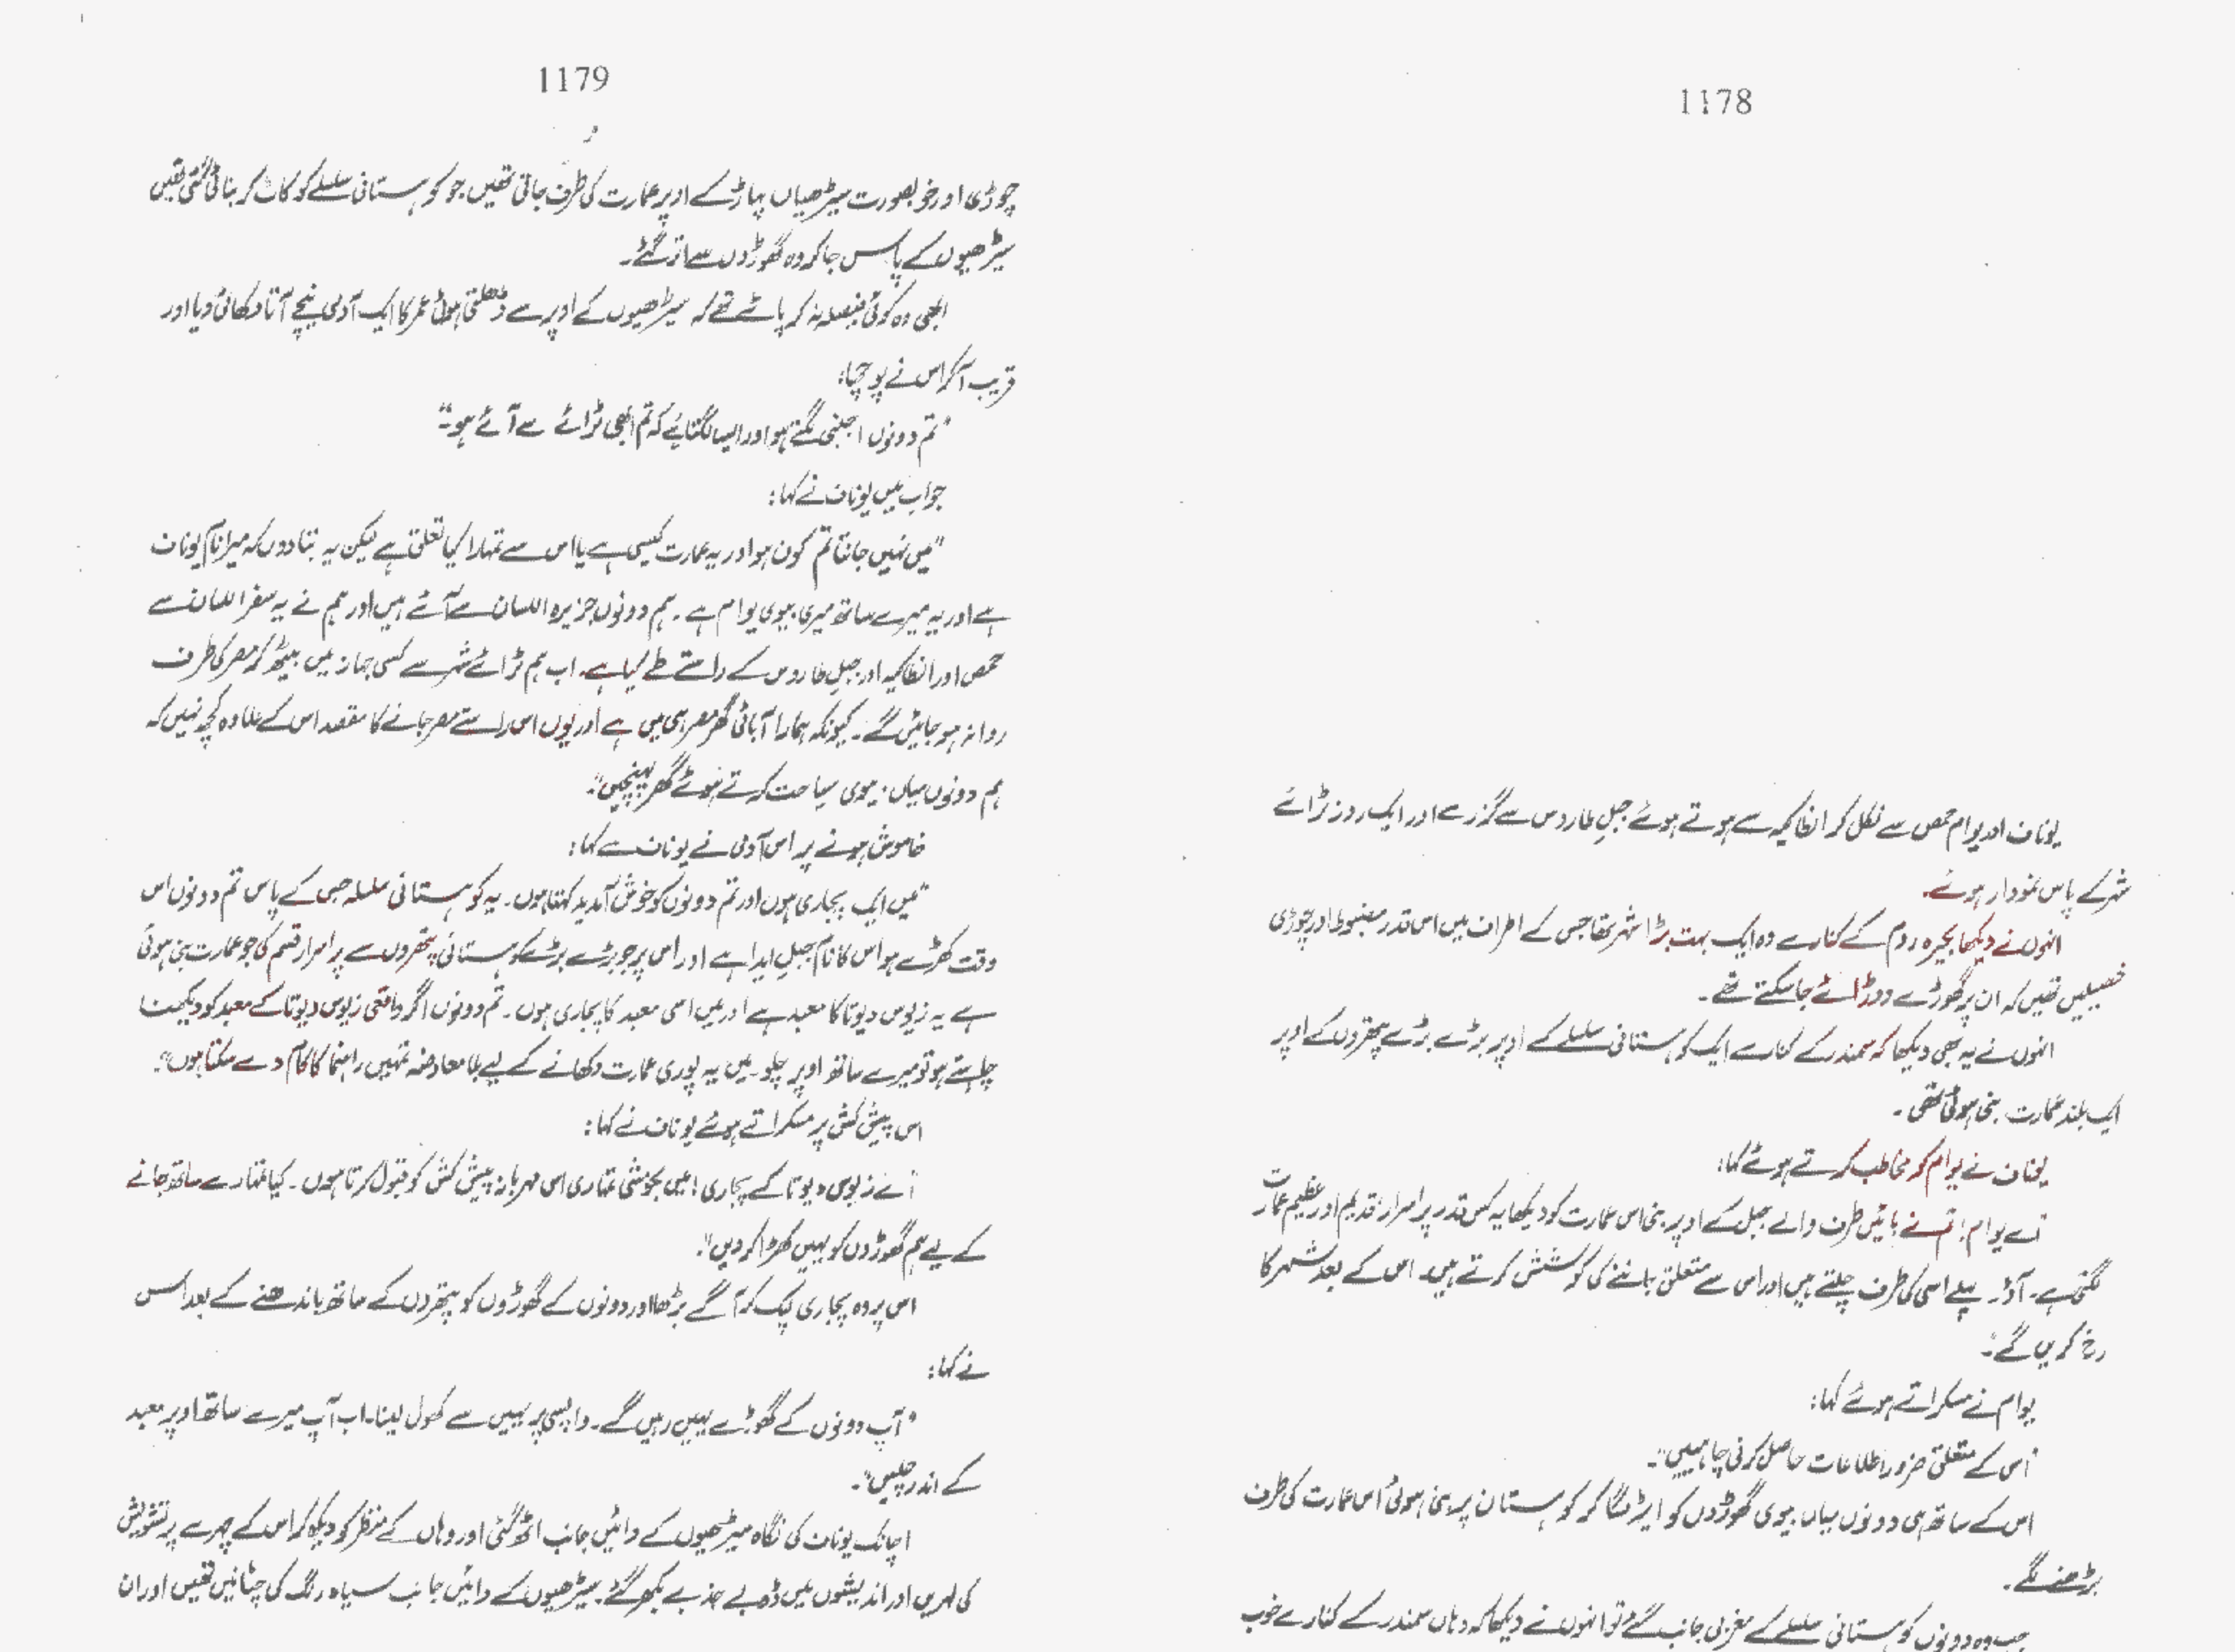 1178
یوناف اور یوام حمص سے نکل کر انطاکیہ سے ہوتے ہوئے جبلِ طاروس سے گزرے اور ایک روز ٹرائے
شہر کے پاس نمودار ہوئے۔
انہوں نے دیکھا بحیرہ روم کے کنارے وہ ایک بہت بڑا شہر تھا جس کے اطراف میں اس قدر مضبوط اور چوڑی
فصیلیں تھیں کہ ان پر گھوڑے دوڑائے جا سکتے تھے۔
انہوں نے یہ بھی دیکھا کہ سمندر کے کنارے ایک کوہستانی سلسلے کے اوپر بڑے بڑے پتھروں کے اوپر
ایک بلند عمارت بنی ہوئی تھی۔
یوناف نے یوام کو مخاطب کرتے ہوئے کہا:
"اے یوام! تم نے بائیں طرف والے جبل کے اوپر بنی اس عمارت کو دیکھا یہ کس قدر پراسرار، قدیم اور عظیم عمارت
لگتی ہے۔ آؤ۔ پہلے اسی کی طرف چلتے ہیں اور اس سے متعلق جاننے کی کوشش کرتے ہیں۔ اس کے بعد شہر کا
رخ کریں گے۔"
یوام نے مسکراتے ہوئے کہا:
"اس کے متعلق ضرور اطلاعات حاصل کرنی چاہییں"۔
اس کے ساتھ ہی دونوں میاں بیوی گھوڑوں کو ایڑ لگا کر کوہستان پر بنی ہوئی اس عمارت کی طرف
بڑھنے لگے۔
جب وہ دونوں کوہستانی سلسلے کے مغربی جانب گئے تو انہوں نے دیکھا کہ وہاں سمندر کے کنارے خوب
1179
چوڑی اور خوبصورت سیڑھیاں پہاڑ کے اوپر عمارت کی طرف جاتی تھیں جو کوہستانی سلسلے کو کاٹ کر بنائی گئی تھیں
سیڑھیوں کے پاس جا کر وہ گھوڑوں سے اتر گئے۔
ابھی وہ کوئی فیصلہ نہ کر پائے تھے کہ سیڑھیوں کے اوپر سے ڈھلتی ہوئی عمر کا ایک آدمی نیچے آتا دکھائی دیا اور
قریب آ کر اس نے پوچھا:
"تم دونوں اجنبی لگتے ہو اور ایسا لگتا ہے کہ تم ابھی ٹرائے سے آئے ہو۔"
جواب میں یوناف نے کہا:
"میں نہیں جانتا تم کون ہو اور یہ عمارت کیسی ہے یا اس سے تمہارا کیا تعلق ہے لیکن یہ بتا دوں کہ میرا نام یوناف
ہے اور یہ میرے ساتھ میری بیوی یوام ہے۔ ہم دونوں جزیرہ اللسان سے آئے ہیں اور ہم نے یہ سفر اللسان سے
حمص اور انطاکیہ اور جبلِ طاروس کے راستے طے کیا ہے۔ اب ہم ٹرائے شہر سے کسی جہاز میں بیٹھ کر مصر کی طرف
روانہ ہو جائیں گے۔ کیونکہ ہمارا آبائی گھر مصر ہی میں ہے اور یوں اس راستے مصر جانے کا مقصد اس کے علاوہ کچھ نہیں کہ
ہم دونوں میاں بیوی سیاحت کرتے ہوئے گھر پہنچیں"۔
خاموش ہونے پر اس آدمی نے یوناف سے کہا:
"میں ایک پجاری ہوں اور تم دونوں کو خوش آمدید کہتا ہوں۔ یہ کوہستانی سلسلہ جس کے پاس تم دونوں اس
وقت کھڑے ہو اس کا نام جبلِ ایدا ہے اور اس پر جو بڑے بڑے کوہستانی پتھروں سے پراسرار قسم کی جو عمارت بنی ہوئی
ہے یہ زیوس دیوتا کا معبد ہے اور میں اسی معبد کا پجاری ہوں۔ تم دونوں اگر واقعی زیوس دیوتا کے معبد کو دیکھنا
چاہتے ہو تو میرے ساتھ اوپر چلو۔ میں یہ پوری عمارت دکھانے کے لیے بلا معاوضہ تمہیں راہنما کا کام دے سکتا ہوں"۔
اس پیش کش پر مسکراتے ہوئے یوناف نے کہا:
"اے زیوس دیوتا کے پجاری! میں بخوشی تمہاری اس مہربانہ پیش کش کو قبول کرتا ہوں۔ کیا تمہارے ساتھ جانے
کے لیے ہم گھوڑوں کو یہیں کھڑا کر دیں"۔
اس پر وہ پجاری لپک کر آگے بڑھا اور دونوں کے گھوڑوں کو پتھروں کے ساتھ باندھنے کے بعد اس
نے کہا:
"آپ دونوں کے گھوڑے یہیں رہیں گے۔ واپسی پر یہیں سے کھول لینا۔ اب آپ میرے ساتھ اوپر معبد
کے اندر چلیں"۔
اچانک یوناف کی نگاہ سیڑھیوں کے دائیں جانب اٹھ گئی اور وہاں کے منظر کو دیکھ کر اس کے چہرے پر تشویش
کی لہریں اور اندیشوں میں ڈوبے جذبے بکھر گئے۔ سیڑھیوں کے دائیں جانب سیاہ رنگ کی چٹانیں تھیں اور ان